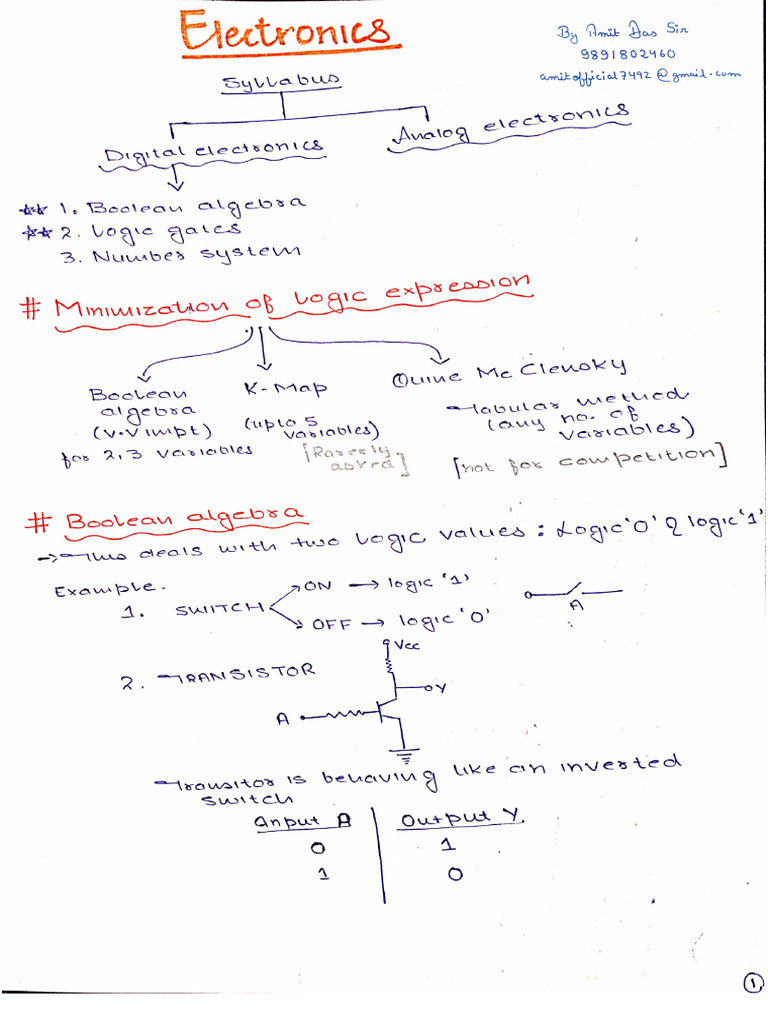 Electronics
By Amit Das Sir
9891802460
amitofficial7492@gmail.com
Syllabus
Digital electronics
Analog electronics
** 1. Boolean algebra
** 2. Logic gates
3. Number system
# Minimization of Logic expression
Boolean algebra
(v.v impt)
for 2,3 variables
K-Map
(upto 5 variables)
[Rarerly asked]
Quine Mc Clensky
Tabular method
(any no. of variables)
[not for competition]
# Boolean algebra
→ This deals with two Logic values : Logic '0' & logic '1'
Example.
1. SWITCH
ON → logic '1'
OFF → logic '0'
A
2. TRANSISTOR
Vcc
Y
A
Transitor is behaving like an inverted
switch
Input A | Output Y.
0 | 1
1 | 0
1